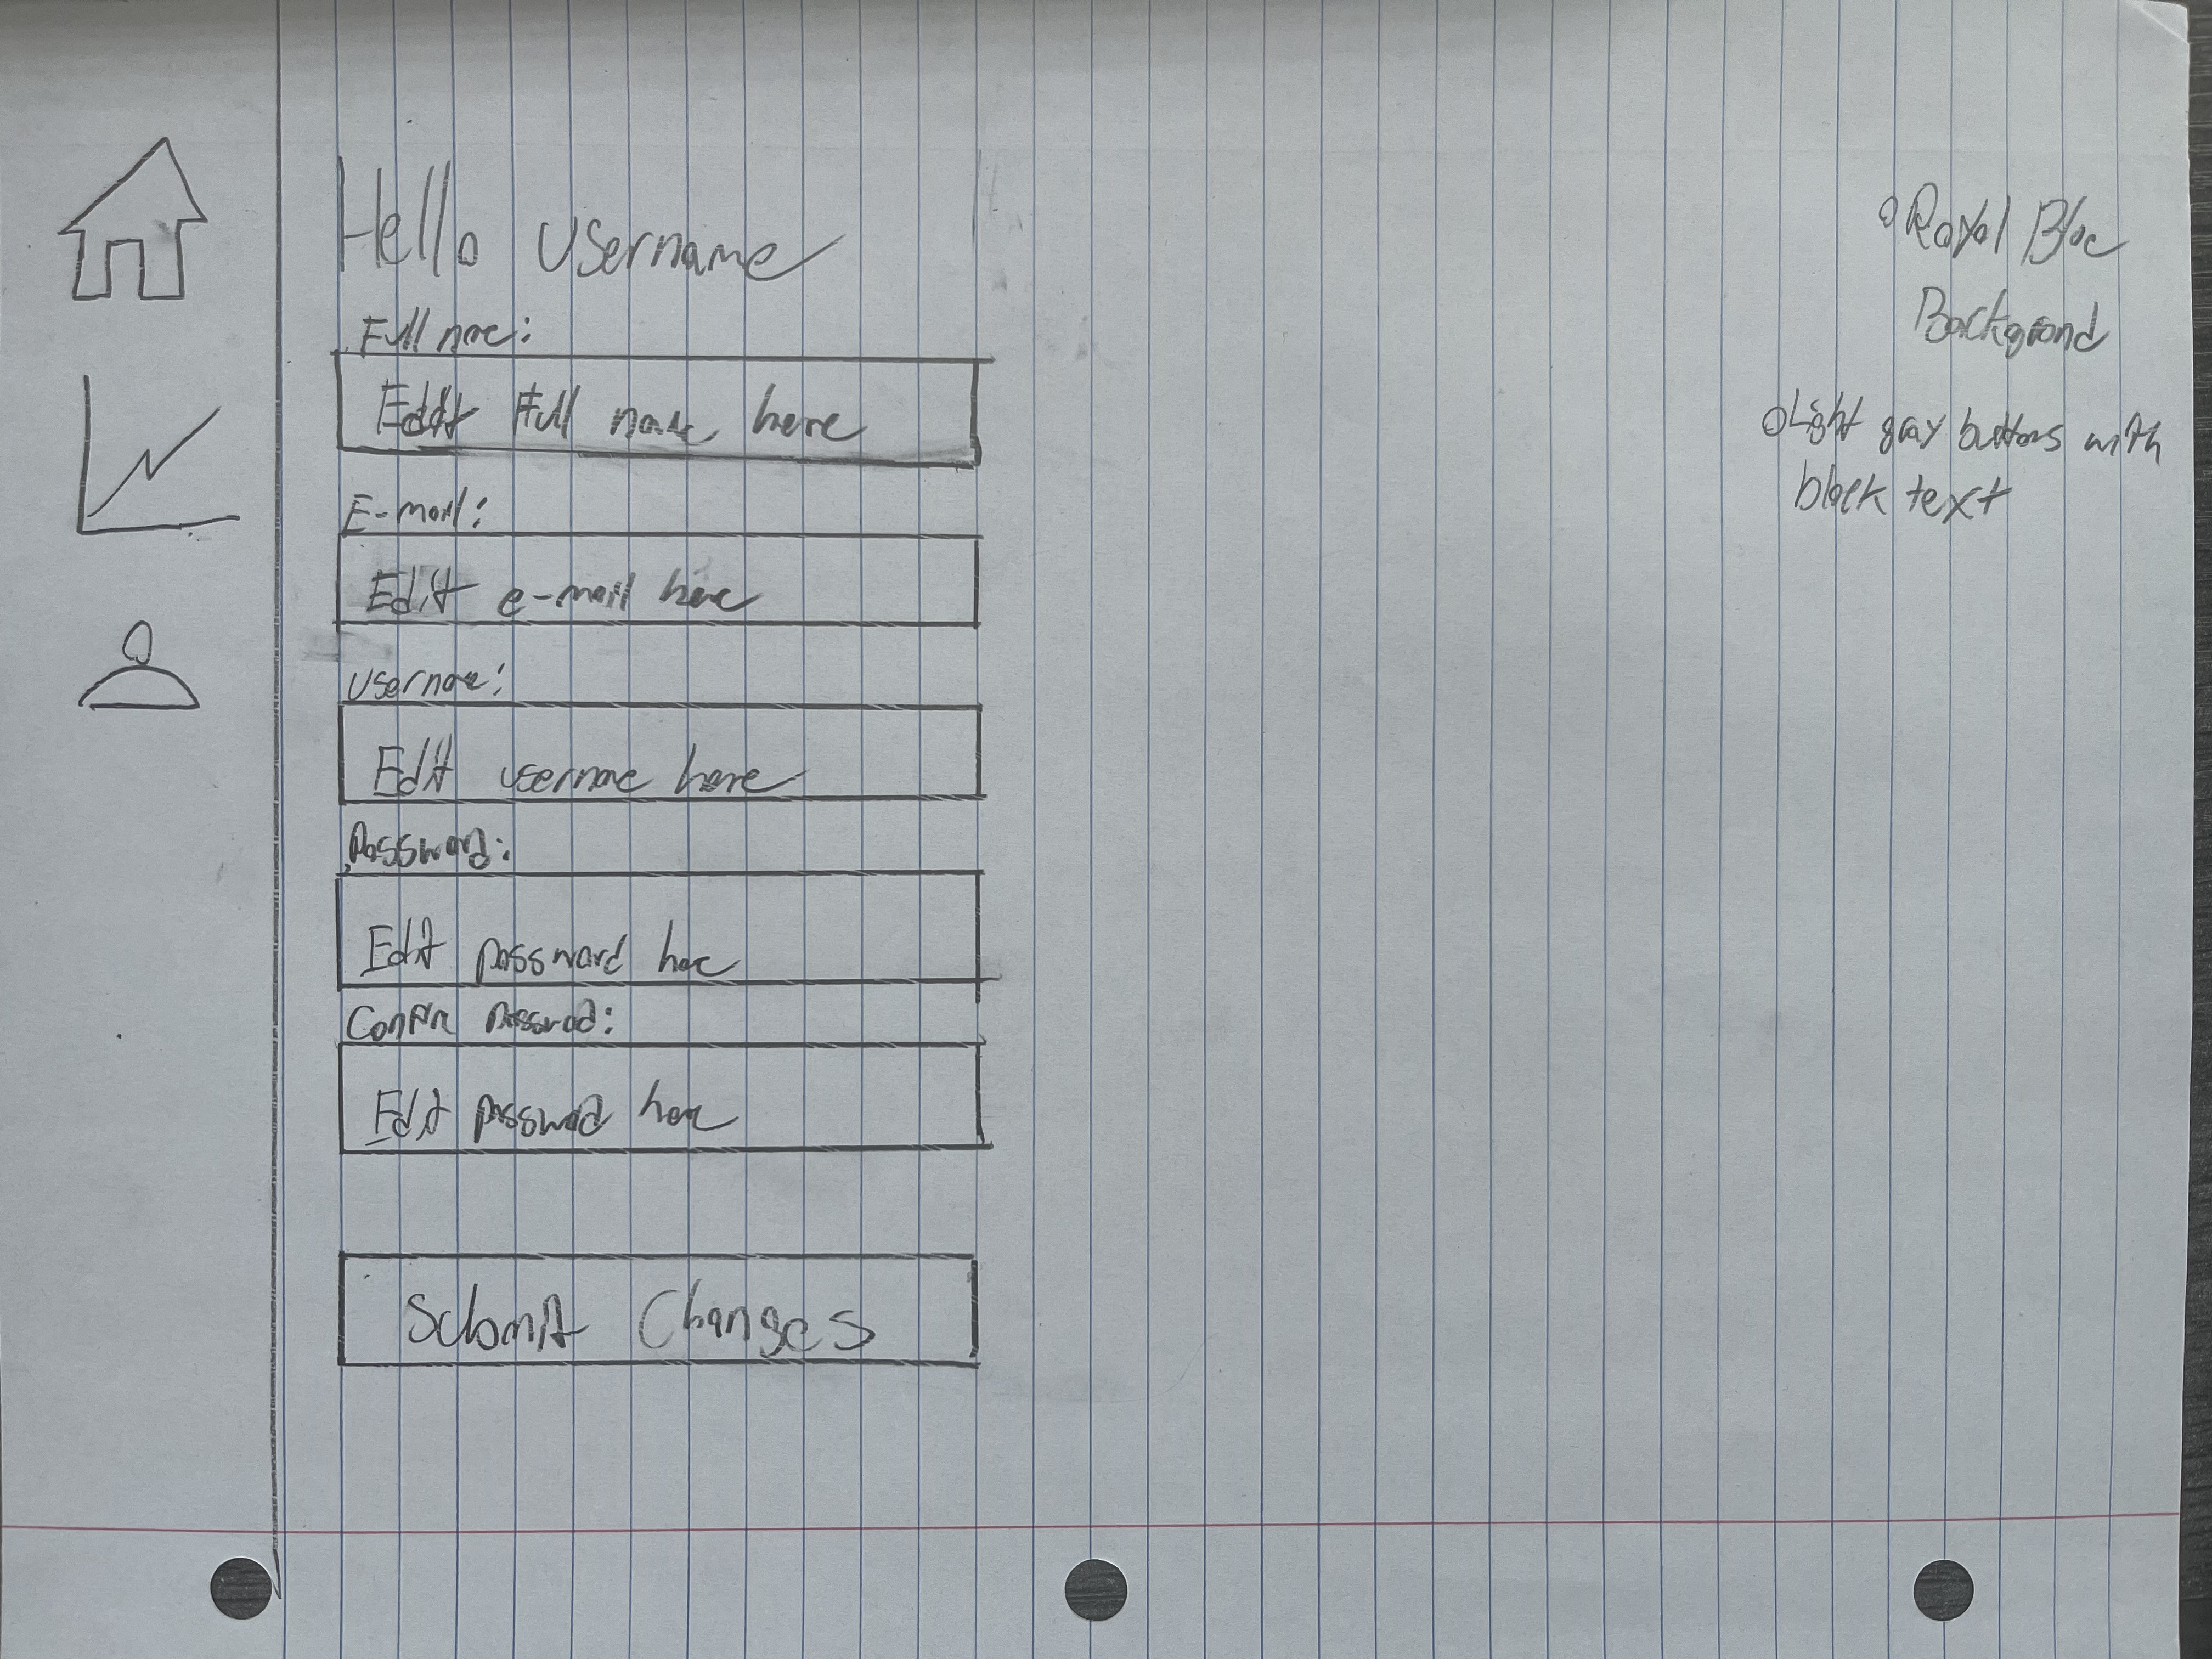 Hello username
Full name:
Edit Full name here
E-mail:
Edit e-mail here
username:
Edit username here
Password:
Edit password here
Confirm password:
Edit password here
Submit Changes
Royal Blue
Background
Light gray buttons with
black text